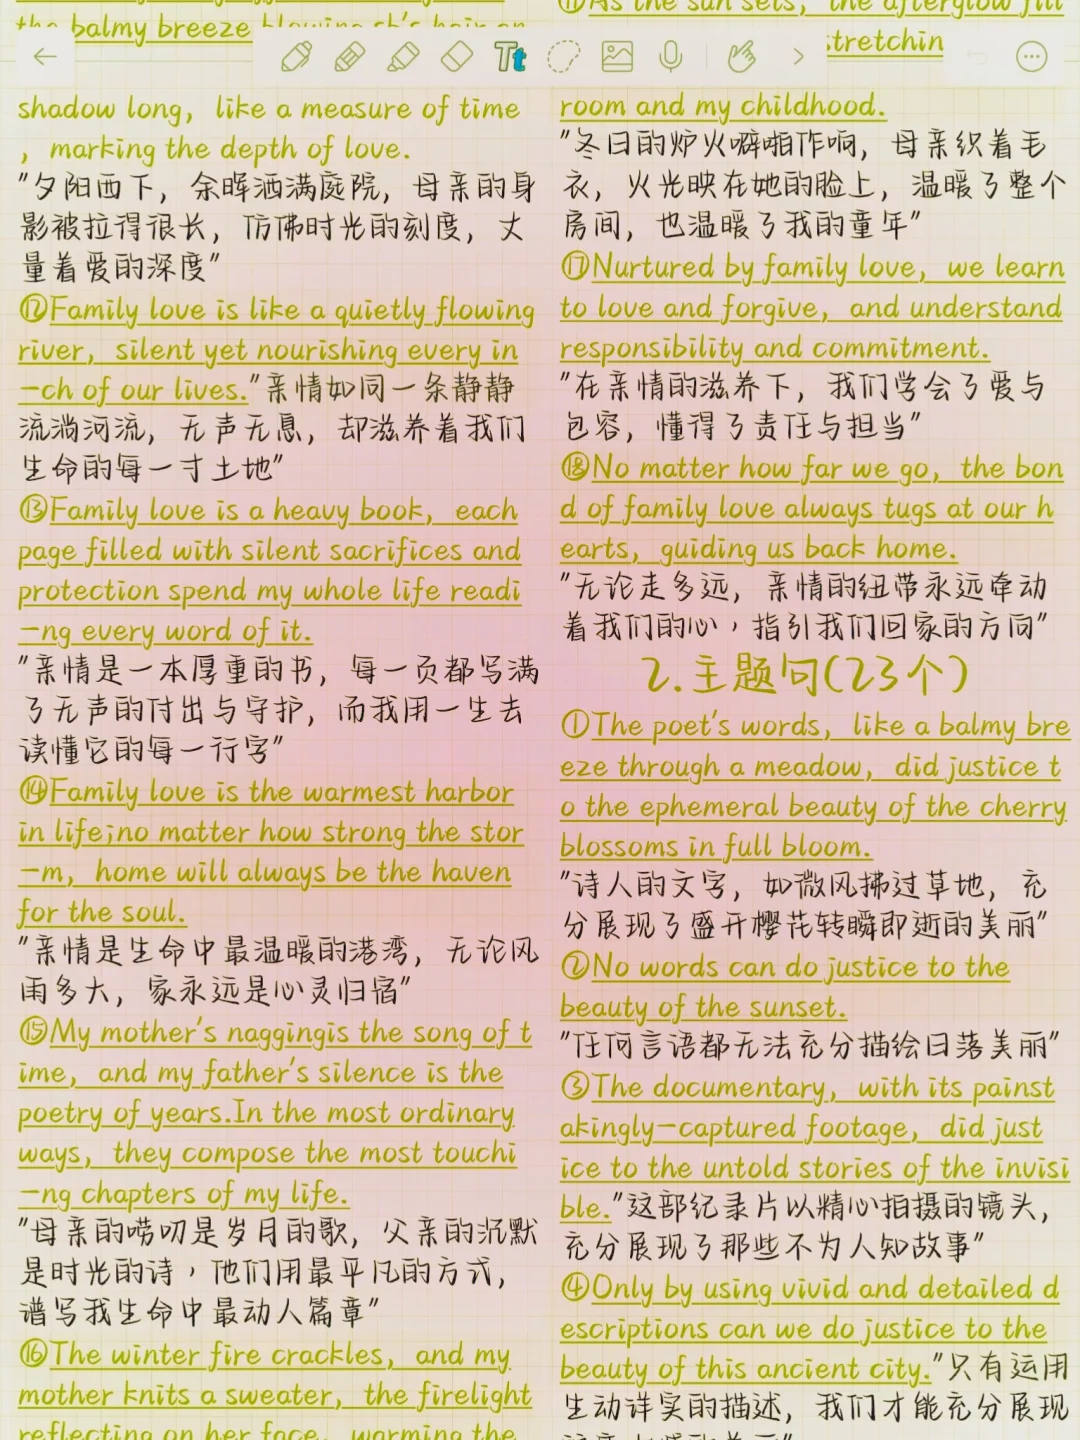 the balmy breeze
shadow long, like a measure of time
, marking the depth of love.
"夕阳西下，余晖洒满庭院，母亲的身
影被拉得很长，仿佛时光的刻度，丈
量着爱的深度"
⑫Family love is like a quietly flowing
river, silent yet nourishing every in
-ch of our lives."亲情如同一条静静
流淌河流，无声无息，却滋养着我们
生命的每一寸土地"
⑬Family love is a heavy book, each
page filled with silent sacrifices and
protection spend my whole life readi
-ng every word of it.
"亲情是一本厚重的书，每一页都写满
了无声的付出与守护，而我用一生去
读懂它的每一行字"
⑭Family love is the warmest harbor
in life;no matter how strong the stor
-m, home will always be the haven
for the soul.
"亲情是生命中最温暖的港湾，无论风
雨多大，家永远是心灵归宿"
⑮My mother's naggingis the song of t
ime, and my father's silence is the
poetry of years.In the most ordinary
ways, they compose the most touchi
-ng chapters of my life.
"母亲的唠叨是岁月的歌，父亲的沉默
是时光的诗，他们用最平凡的方式，
谱写我生命中最动人篇章"
⑯The winter fire crackles, and my
mother knits a sweater, the firelight
reflecting on her face, warming the
⑪As the sun sets, the afterglow fill
stretchin
Tt
room and my childhood.
"冬日的炉火噼啪作响，母亲织着毛
衣，火光映在她的脸上，温暖了整个
房间，也温暖了我的童年"
⑰Nurtured by family love, we learn
to love and forgive, and understand
responsibility and commitment.
"在亲情的滋养下，我们学会了爱与
包容，懂得了责任与担当"
⑱No matter how far we go, the bon
d of family love always tugs at our h
earts, guiding us back home.
"无论走多远，亲情的纽带永远牵动
着我们的心，指引我们回家的方向"
2.主题句(23个)
①The poet's words, like a balmy bre
eze through a meadow, did justice t
o the ephemeral beauty of the cherry
blossoms in full bloom.
"诗人的文字，如微风拂过草地，充
分展现了盛开樱花转瞬即逝的美丽"
②No words can do justice to the
beauty of the sunset.
"任何言语都无法充分描绘日落美丽"
③The documentary, with its painst
akingly-captured footage, did just
ice to the untold stories of the invisi
ble."这部纪录片以精心拍摄的镜头，
充分展现了那些不为人知故事"
④Only by using vivid and detailed d
escriptions can we do justice to the
beauty of this ancient city."只有运用
生动详实的描述，我们才能充分展现